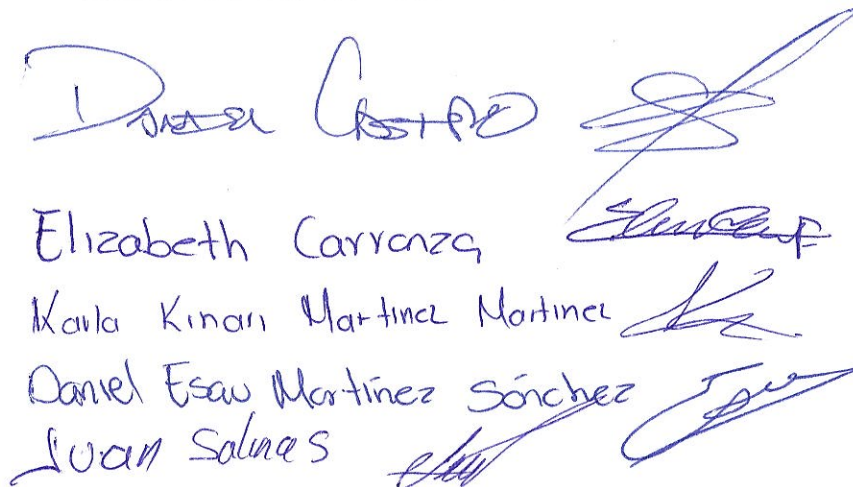 Daniel Castro
Elizabeth Carranza
Karla Kinari Martinez Martinez
Daniel Esau Martínez Sánchez
Juan Salinas